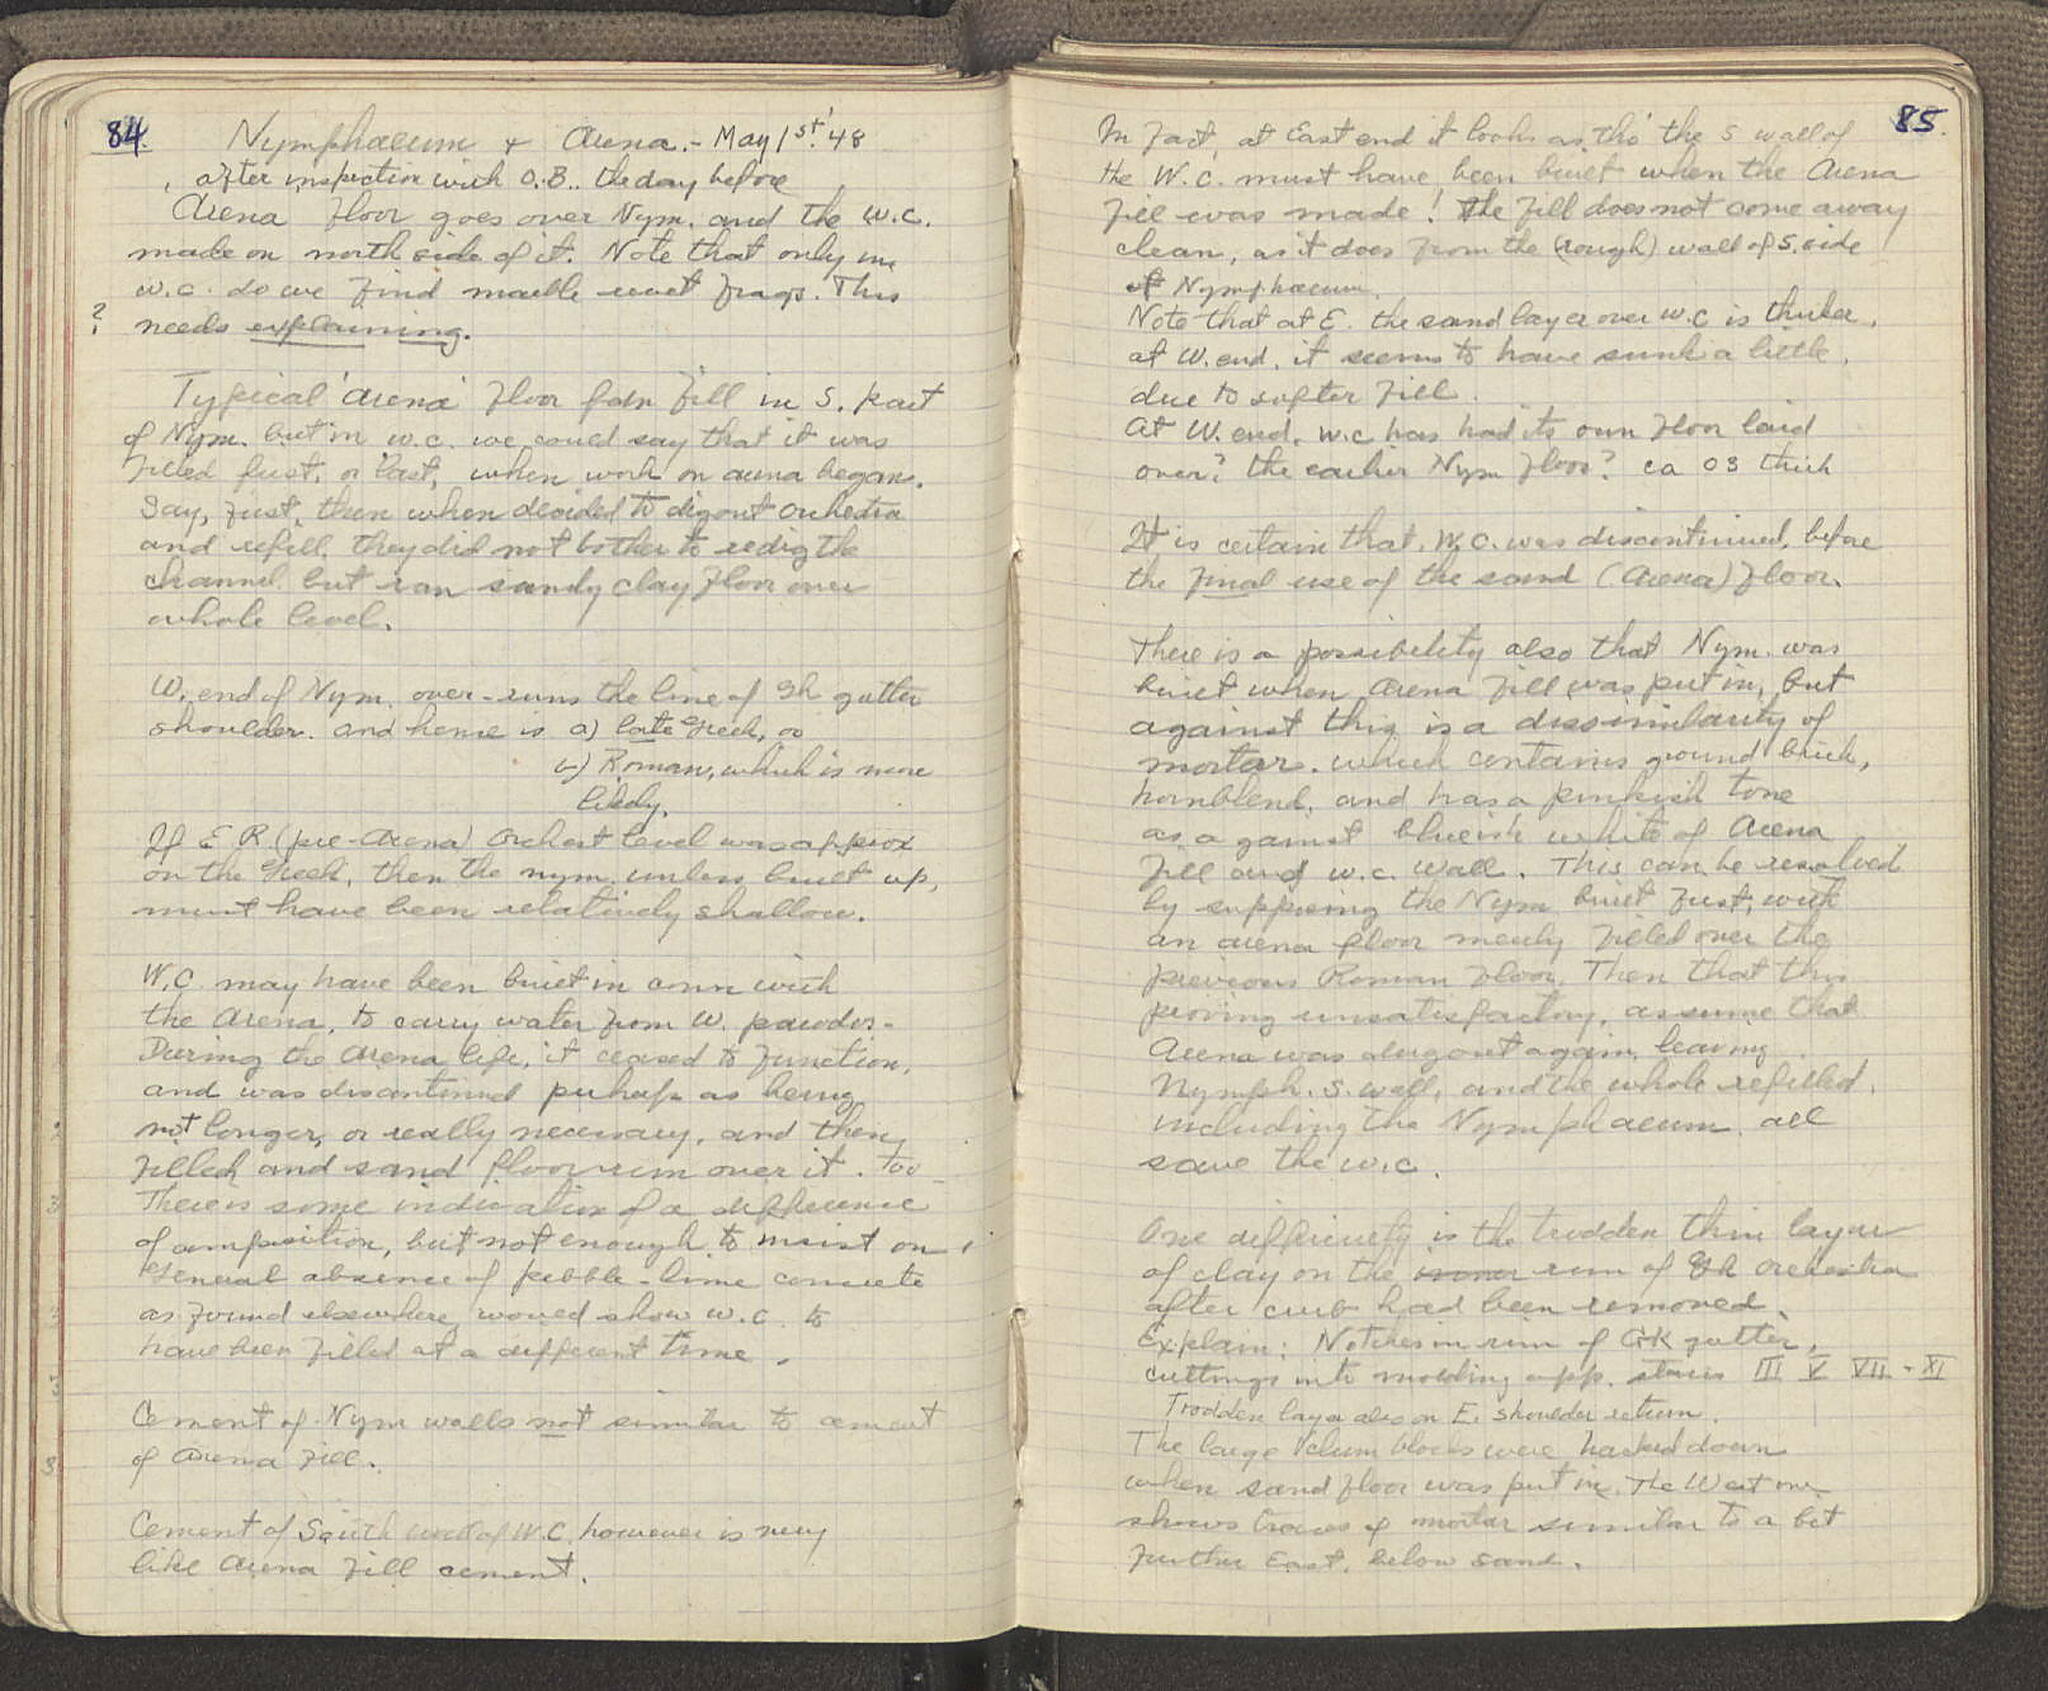 84.
Nymphaeum + Arena. - May 1st. '48
after inspection with O.B.. the day before
Arena floor goes over Nym. and the W.C.
made on north side of it. Note that only in
w.c. do we find marble revet frags. This
? needs explaining.
Typical 'arena' floor fill in S. part
of Nym. but in w.c. we could say that it was
filled first, or last, when work on arena began.
Say, first, then when decided to dig out orchestra
and refill, they did not bother to redig the
channel. but ran sandy clay floor over
whole level.
W. end of Nym. over-runs the line of Gk gutter
shoulder. and hence is a) late Greek, or
b) Roman, which is more
likely.
If E R (pre-Arena) Orchest level was approx
on the Greek, then the nym. unless built up,
must have been relatively shallow.
W.C. may have been built in conn with
the Arena, to carry water from W. parodos-
During the arena life, it ceased to function,
and was discontinued perhaps as being
not longer, or really necessary, and then
filled and sand floor run over it. Too
There is some indication of a difference
of composition, but not enough to insist on!
General absence of pebble-lime concrete
as found elsewhere, would show w.c. to
have been filled at a different time.
Cement of Nym walls not similar to cement
of Arena fill.
Cement of South wall of W.C. however is very
like Arena fill cement.
85.
In fact, at East end it looks as tho' the S wall of
the W.C. must have been built when the Arena
fill was made! The fill does not come away
clean, as it does from the (rough) wall of S. side
of Nymphaeum.
Note that at E. the sand layer over w.c is thicker.
at W. end. it seems to have sunk a little.
due to softer fill.
At W. end. w.c has had its own floor laid
over? the earlier Nym floor? ca 03 thick
It is certain that. W.C. was discontinued, before
the final use of the sand (Arena) floor.
There is a possibility also that Nym. was
built when Arena fill was put in, but
against this is a dissimilarity of
mortar. which contains ground brick,
hornblend, and has a pinkish tone
as against blueish white of Arena
fill and w.c. wall. This can be resolved
by supposing the Nym built first, with
an arena floor merely filled over the
previous Roman floor. Then that this
proving unsatisfactory, assume that
Arena was dug out again, leaving
Nymph. S. wall, and the whole refilled.
including the Nymphaeum. all
save the w.c.
One difficulty is the trodden thin layer
of clay on the rim of Gk orchestra
after curb had been removed.
Explain: Notches in rim of GK gutter,
cuttings into molding opp. stairs III V VII - XI
Trodden layer also on E. shoulder return.
The large Velum blocks were hacked down
when sand floor was put in. The West one
shows traces of mortar similar to a bit
further East. below sand.